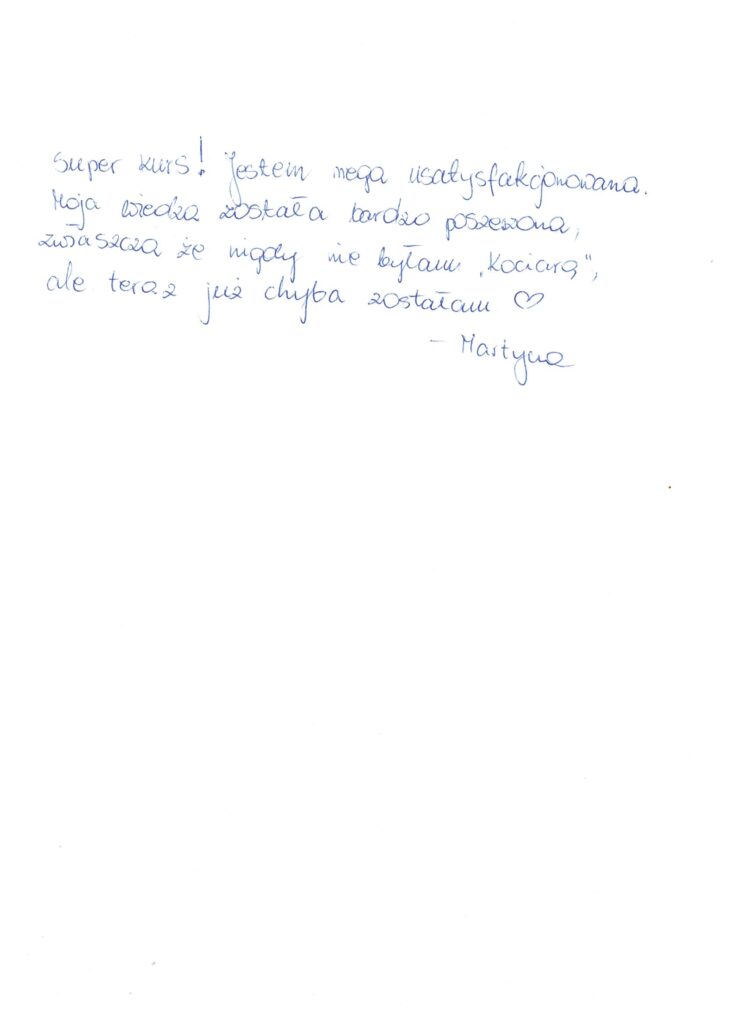 Super kurs! Jestem mega usatysfakcjonowana.
Moja wiedza została bardzo poszerzona,
zwłaszcza że nigdy nie byłam „Kociarą",
ale teraz już chyba zostałam ♡
- Martyna